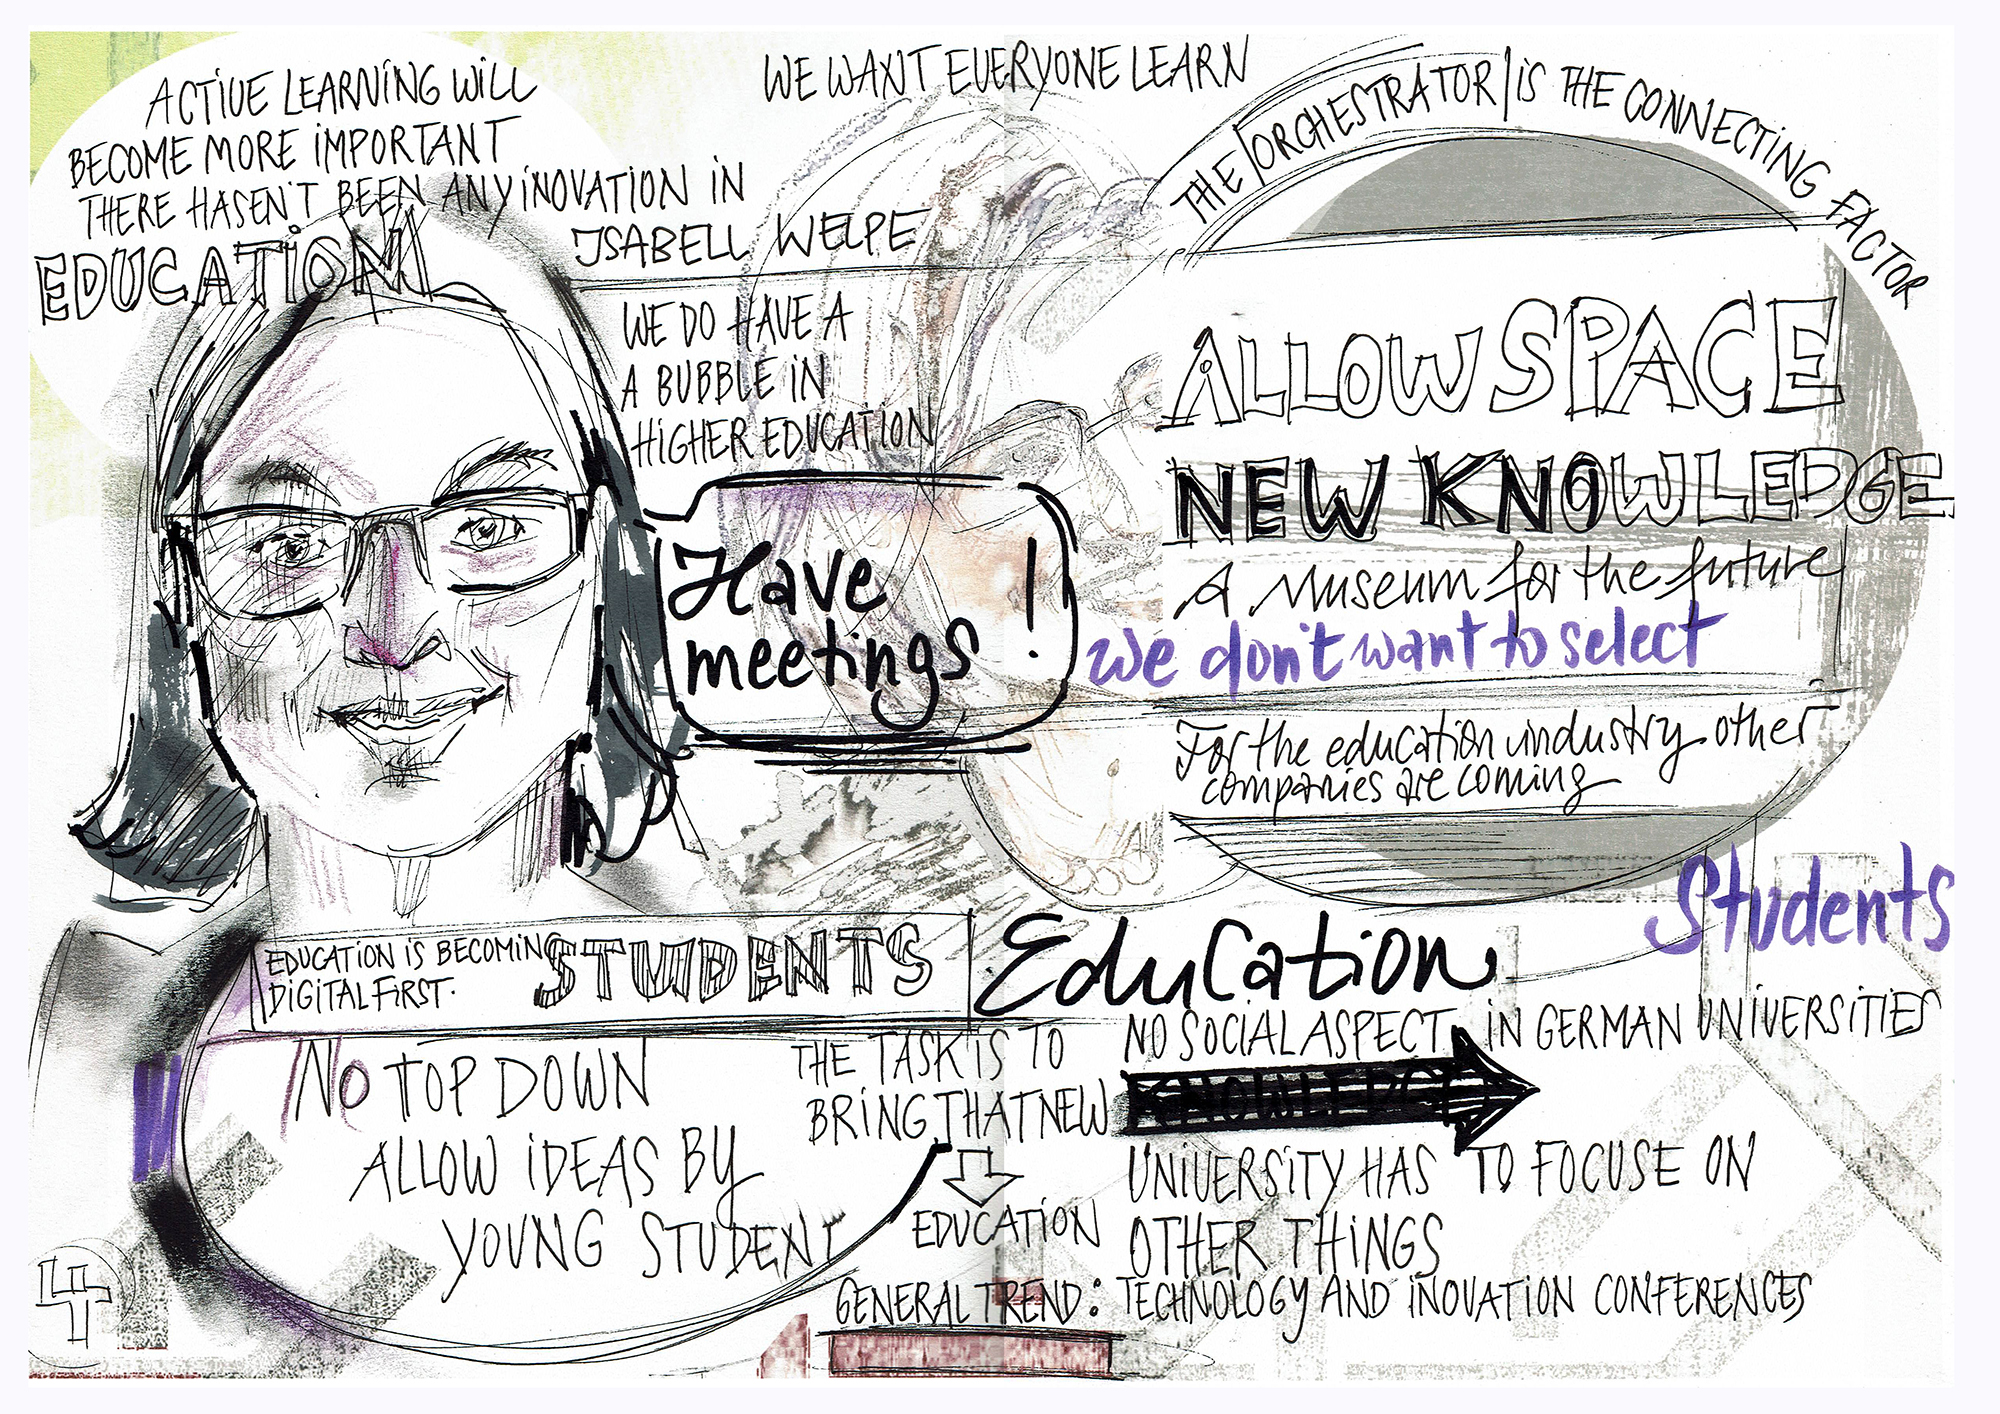 ACTIVE LEARNING WILL
BECOME MORE IMPORTANT
THERE HASEN'T BEEN ANY INOVATION IN
EDUCATION
ISABELL WELPE
WE WANT EVERYONE LEARN
THE ORCHESTRATOR IS THE CONNECTING FACTOR
WE DO HAVE A
A BUBBLE IN
HIGHER EDUCATION
Have
meetings !
ALLOW SPACE
NEW KNOWLEDGE
A Museum for the future
We don't want to select
For the education industry other
companies are coming
Students
EDUCATION IS BECOMING
DIGITAL FIRST.
STUDENTS
Education
NO TOP DOWN
ALLOW IDEAS BY
YOUNG STUDENT
THE TASK IS TO
BRING THAT NEW
EDUCATION
NO SOCIAL ASPECT IN GERMAN UNIVERSITIES
KNOWLEDGE
UNIVERSITY HAS TO FOCUSE ON
OTHER THINGS
GENERAL TREND: TECHNOLOGY AND INOVATION CONFERENCES